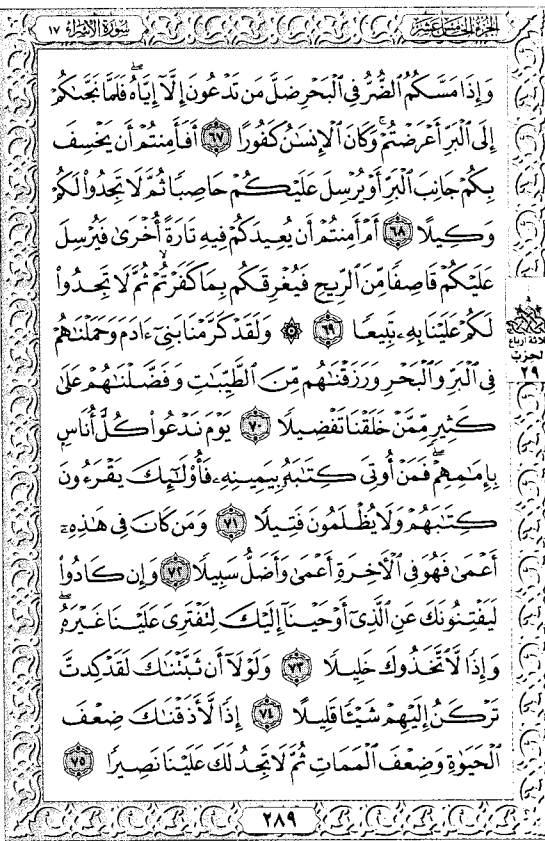 الجزء الخامس عشر
سورة الإسراء ١٧
وَإِذَا مَسَّكُمُ ٱلضُّرُّ فِى ٱلْبَحْرِ ضَلَّ مَن تَدْعُونَ إِلَّآ إِيَّاهُ ۖ فَلَمَّا نَجَّىٰكُمْ
إِلَى ٱلْبَرِّ أَعْرَضْتُمْ ۚ وَكَانَ ٱلْإِنسَٰنُ كَفُورًا ٦٧ أَفَأَمِنتُمْ أَن يَخْسِفَ
بِكُمْ جَانِبَ ٱلْبَرِّ أَوْ يُرْسِلَ عَلَيْكُمْ حَاصِبًا ثُمَّ لَا تَجِدُوا۟ لَكُمْ
وَكِيلًا ٦٨ أَمْ أَمِنتُمْ أَن يُعِيدَكُمْ فِيهِ تَارَةً أُخْرَىٰ فَيُرْسِلَ
عَلَيْكُمْ قَاصِفًا مِّنَ ٱلرِّيحِ فَيُغْرِقَكُم بِمَا كَفَرْتُمْ ۙ ثُمَّ لَا تَجِدُوا۟
لَكُمْ عَلَيْنَا بِهِۦ تَبِيعًا ٦٩ ۞ وَلَقَدْ كَرَّمْنَا بَنِىٓ ءَادَمَ وَحَمَلْنَٰهُمْ
فِى ٱلْبَرِّ وَٱلْبَحْرِ وَرَزَقْنَٰهُم مِّنَ ٱلطَّيِّبَٰتِ وَفَضَّلْنَٰهُمْ عَلَىٰ
كَثِيرٍ مِّمَّنْ خَلَقْنَا تَفْضِيلًا ٧٠ يَوْمَ نَدْعُوا۟ كُلَّ أُنَاسٍۭ
بِإِمَٰمِهِمْ ۖ فَمَنْ أُوتِىَ كِتَٰبَهُۥ بِيَمِينِهِۦ فَأُو۟لَٰٓئِكَ يَقْرَءُونَ
كِتَٰبَهُمْ وَلَا يُظْلَمُونَ فَتِيلًا ٧١ وَمَن كَانَ فِى هَٰذِهِۦٓ
أَعْمَىٰ فَهُوَ فِى ٱلْءَاخِرَةِ أَعْمَىٰ وَأَضَلُّ سَبِيلًا ٧٢ وَإِن كَادُوا۟
لَيَفْتِنُونَكَ عَنِ ٱلَّذِىٓ أَوْحَيْنَآ إِلَيْكَ لِتَفْتَرِىَ عَلَيْنَا غَيْرَهُۥ ۖ
وَإِذًا لَّٱتَّخَذُوكَ خَلِيلًا ٧٣ وَلَوْلَآ أَن ثَبَّتْنَٰكَ لَقَدْ كِدتَّ
تَرْكَنُ إِلَيْهِمْ شَيْـًٔا قَلِيلًا ٧٤ إِذًا لَّأَذَقْنَٰكَ ضِعْفَ
ٱلْحَيَوٰةِ وَضِعْفَ ٱلْمَمَاتِ ثُمَّ لَا تَجِدُ لَكَ عَلَيْنَا نَصِيرًا ٧٥
ثلاثة أرباع
الحزب
٢٩
٢٨٩